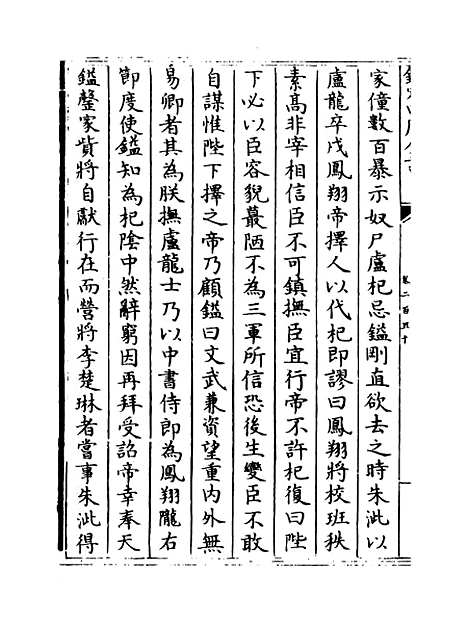 欽定四庫全書
卷二百五十
家僮數百暴示奴尸盧杞忌鎰剛直欲去之時朱泚以
盧龍卒戍鳳翔帝擇人以代杞即謬曰鳳翔將校班秩
素髙非宰相信臣不可鎮撫臣宜行帝不許杞復曰陛
下必以臣容貌蕞陋不為三軍所信恐後生變臣不敢
自謀惟陛下擇之帝乃顧鎰曰文武兼資望重内外無
易卿者其為朕撫盧龍士乃以中書侍郎為鳳翔隴右
節度使鎰知為杞陰中然辭窮因再拜受詔帝幸奉天
鎰罄家貲將自獻行在而營將李楚琳者嘗事朱泚得